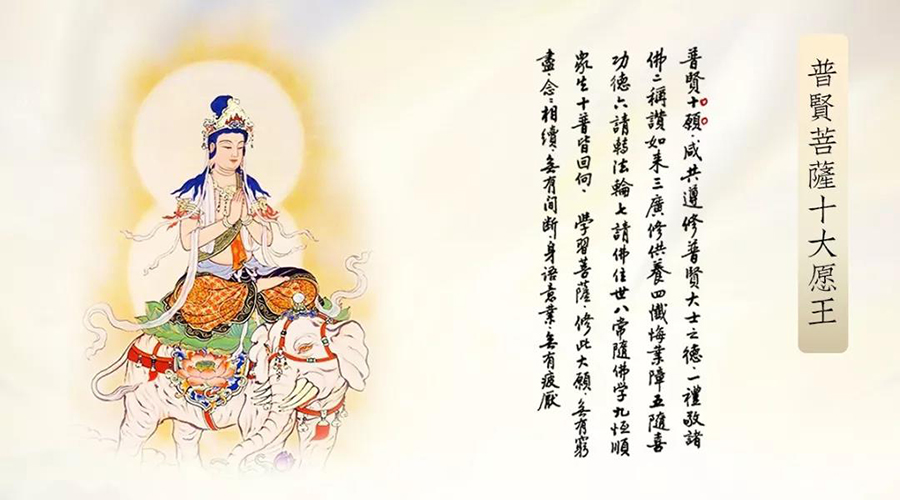 普賢菩薩十大愿王
普賢十願、咸共遵修普賢大士之德、一禮敬諸
佛二稱讚如来三廣修供養四懺悔業障五隨喜
功德六請轉法輪七請佛住世八常隨佛学九恒順
眾生十普皆回向、學習菩薩、修此大願、無有窮
盡、念念相續、無有间断、身语意業、無有疲厭